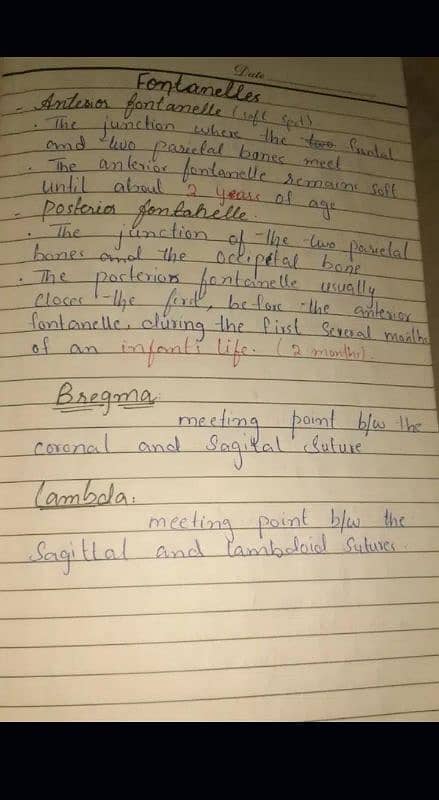 Date
Fontanelles
- Anterior fontanelle (soft spot)
. The junction where the two frontal
and two parietal bones meet
. The anterior fontanelle remains soft
until about 2 years of age
- Posterior fontanelle.
. The junction of the two parietal
bones and the occipital bone
. The posterior fontanelle usually
closes the first, before the anterior
fontanelle, during the first several months
of an infant's life. (2 months).
Bregma
meeting point b/w the
coronal and Sagital Suture
Lambda:
meeting point b/w the
Sagittal and lambdoid Sutures.